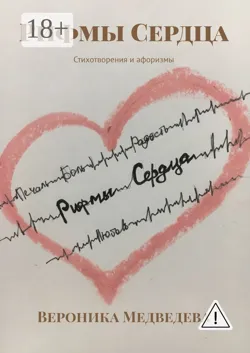 18+
РИФМЫ СЕРДЦА
Стихотворения и афоризмы
Печаль Боль Радость
Рифмы Сердца
Любовь
ВЕРОНИКА МЕДВЕДЕВ